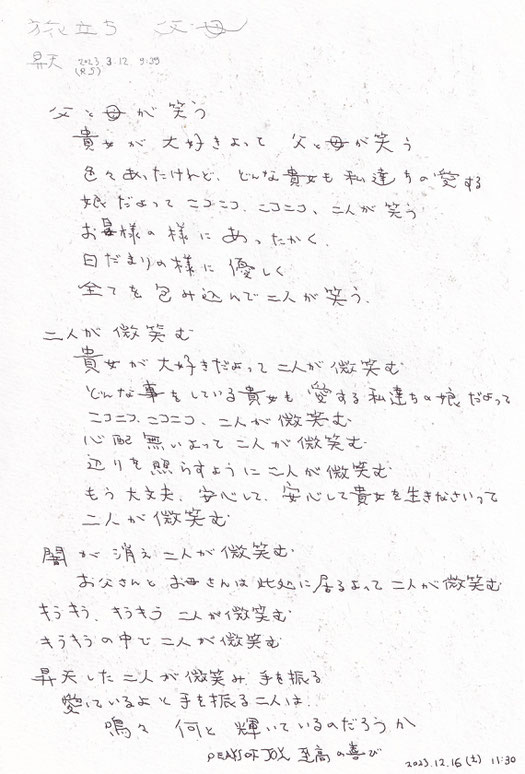 旅立ち 父・母
昇天 2023.3.12. 9:39
父と母が笑う
貴女が大好きよって 父と母が笑う
色々あったけれど、どんな貴女も私達の愛する
娘だよって ニコニコ、ニコニコ、二人が笑う
お日様の様に あったかく、
日だまりの様に 優しく
全てを包み込んで二人が笑う、
二人が微笑む
貴女が大好きだよって二人が微笑む
どんな事をしている貴女も 愛する私達の娘だよって
ニコニコ、ニコニコ、二人が微笑む
心配無いよって 二人が微笑む
辺りを照らすように二人が微笑む
もう大丈夫、安心して、安心して貴女を生きなさいって
二人が微笑む
闇が消え二人が微笑む
お父さんとお母さんは此処に居るよって二人が微笑む
キラキラ、キラキラ 二人が微笑む
キラキラの中で二人が微笑む
昇天した二人が微笑み手を振る
愛しているよと手を振る二人は、
嗚々 何と輝いているのだろうか
至高の喜び
2023.12.16(土) 11:30